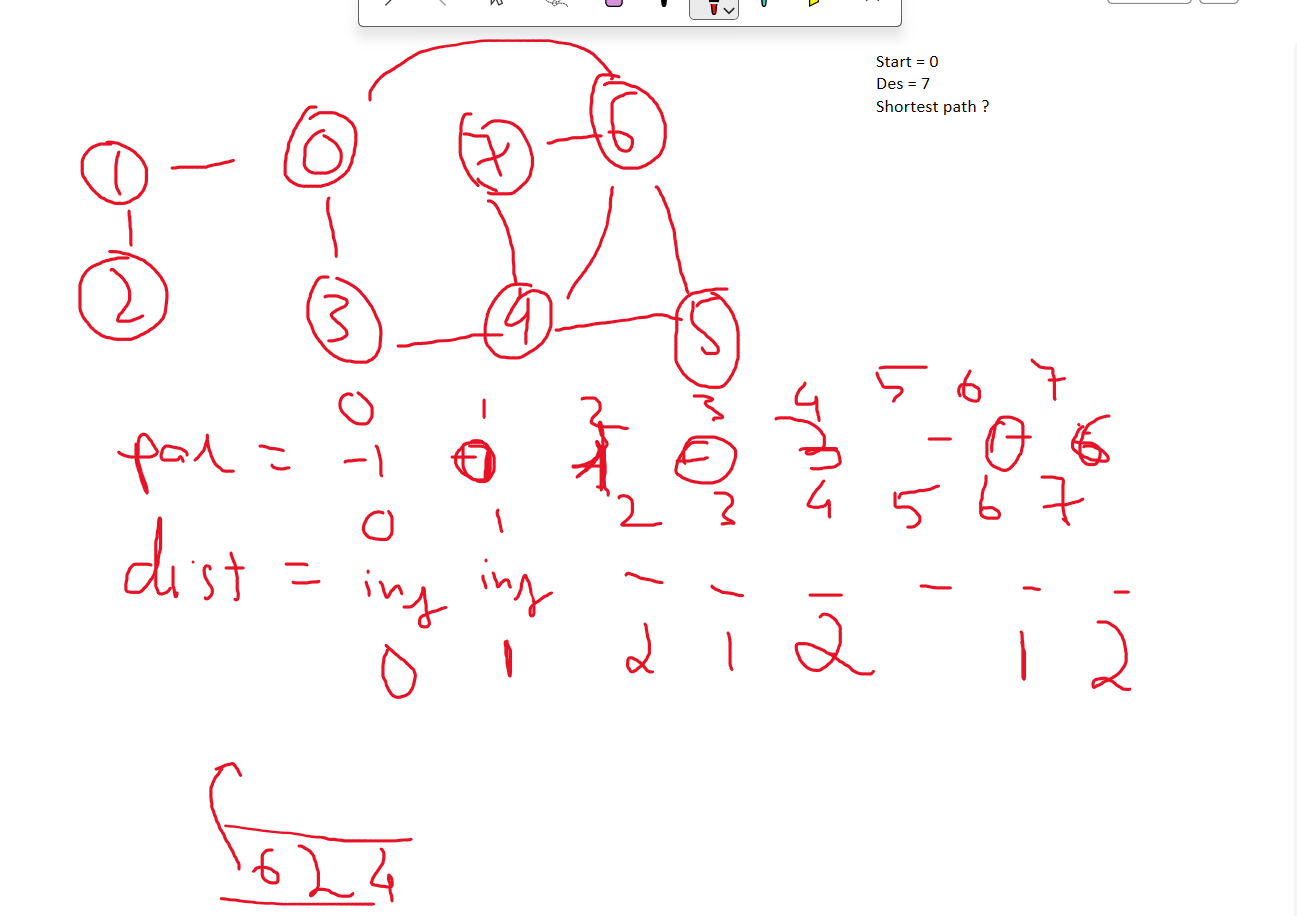 Start = 0
Des = 7
Shortest path ?
0 7 6
1
2 3 4 5
0 1 2 3 4 5 6 7
par = -1 0 1 0 3 - 0 6
0 1 2 3 4 5 6 7
dist = inf inf - - - - - -
0 1 2 1 2 1 2
6 2 4